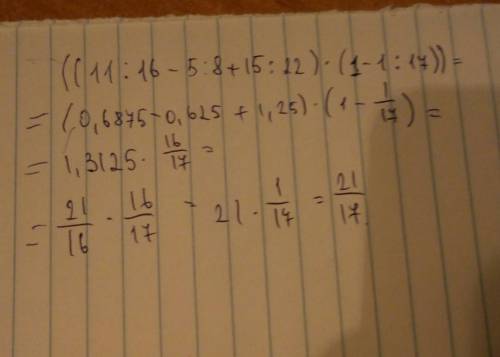 ((11:16-5:8+15:22)·(1-1:17))=
=(0,6875-0,625+1,25)·(1-1/17)=
=1,3125·16/17=
=21/16·16/17=21·1/17=21/17